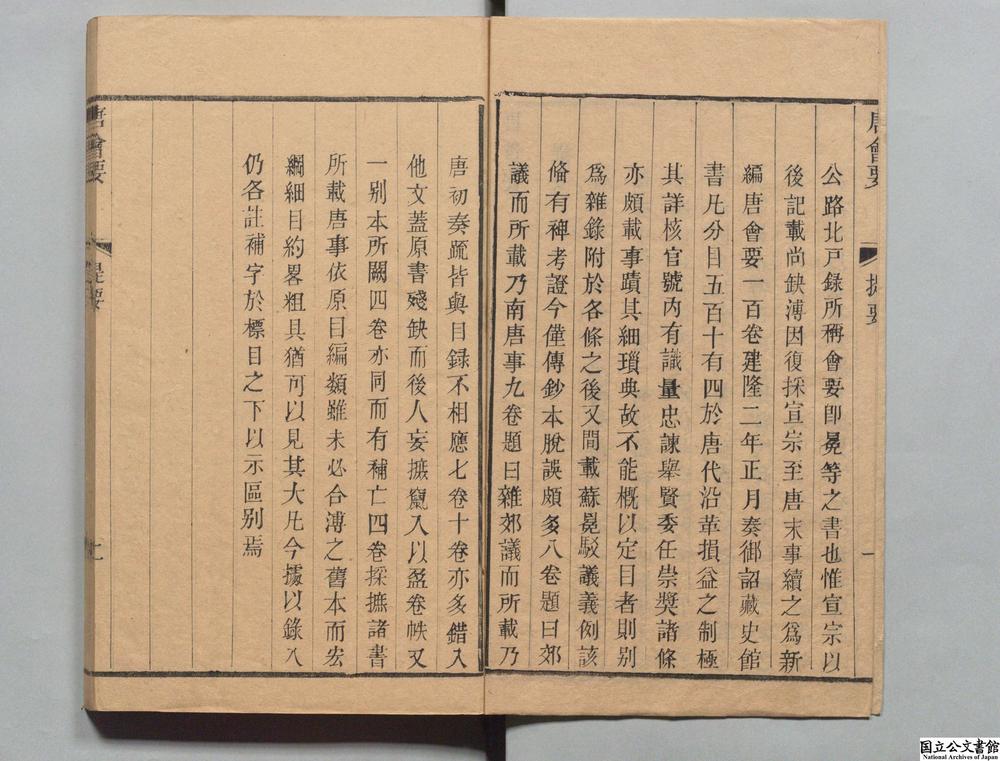 唐會要
提要
一
公路北戸錄所稱會要卽冕等之書也惟宣宗以
後記載尚缺溥因復採宣宗至唐末事續之爲新
編唐會要一百卷建隆二年正月奏御詔藏史館
書凡分目五百十有四於唐代沿革損益之制極
其詳核官號內有識量忠諫舉賢委任崇獎諸條
亦頗載事蹟其細瑣典故不能概以定目者則别
爲雜錄附於各條之後又間載蘇冕駁議義例該
俻有裨考證今僅傳鈔本脫誤頗多八卷題曰郊
議而所載乃南唐事九卷題曰雜郊議而所載乃
唐初奏疏皆與目録不相應七卷十卷亦多錯入
他文蓋原書殘缺而後人妄摭竄入以盈卷帙又
一别本所闕四卷亦同而有補亡四卷採摭諸書
所載唐事依原目編類雖未必合溥之舊本而宏
綱細目約畧粗具猶可以見其大凡今據以錄入
仍各註補字於標目之下以示區别焉
唐會要
提要
国立公文書館
National Archives of Japan